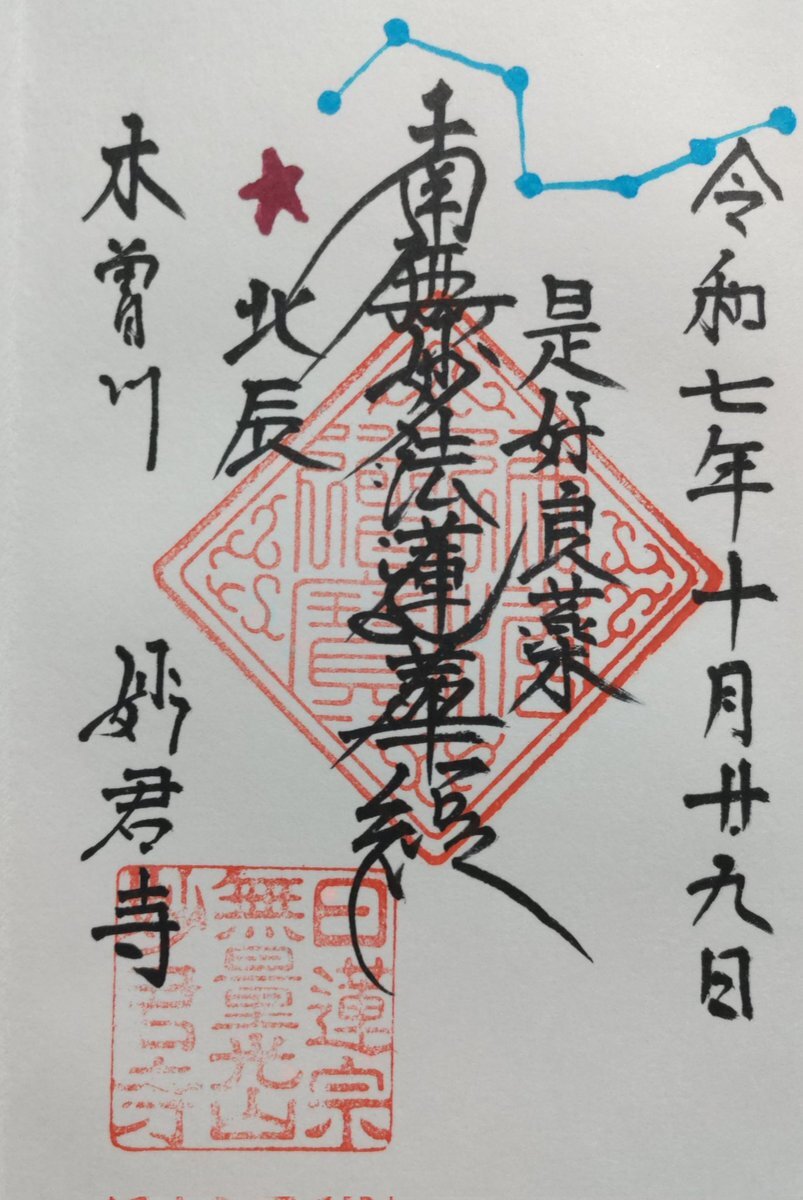 令和七年十月廿九日
是好良薬
南無妙法蓮華経
北辰
木曽川 妙君寺
日蓮宗
無量光山
妙君寺